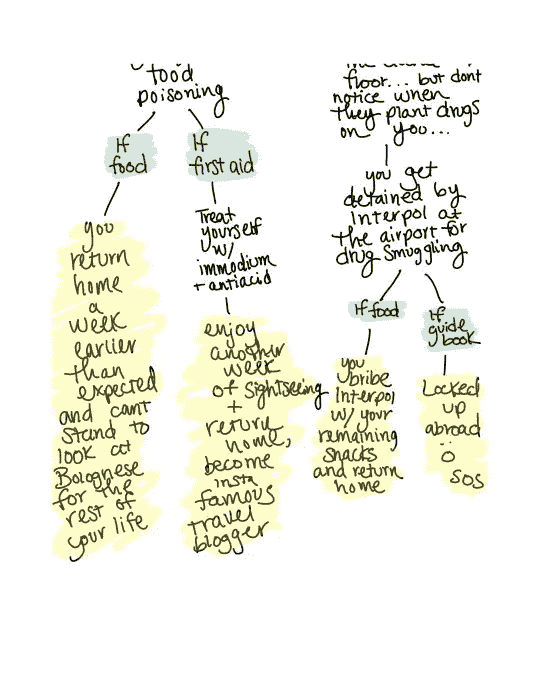 food
poisoning
If
food
If
first aid
you
return
home
a
week
earlier
than
expected
and cant
stand to
look at
Bolognese
for the
rest of
your life
Treat
yourself
w/
immodium
+ antiacid
enjoy
another
week
of sightseeing
+
return
home,
become
insta
famous
travel
blogger
floor... but dont
notice when
they plant drugs
on you...
you get
detained by
Interpol at
the airport for
drug smuggling
If food
If
guide
book
you
bribe
Interpol
w/ your
remaining
snacks
and return
home
Locked
up
abroad
SOS